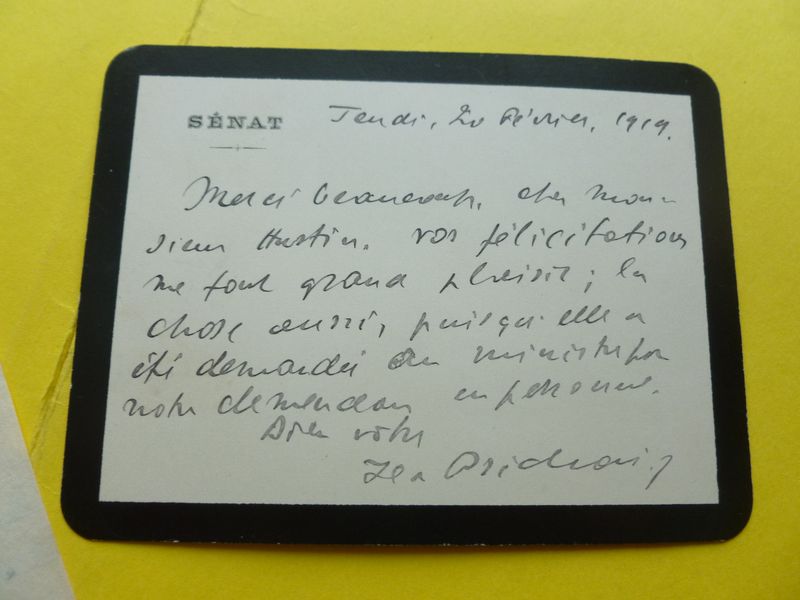 SÉNAT
Jeudi, 20 Février, 1919.
Merci beaucoup, cher Mon-
sieur Hustin. vos félicitations
me font grand plaisir; la
chose aussi, puisqu'elle a
été demandée au ministre par
notre Clemenceau en personne.
Bien vôtre